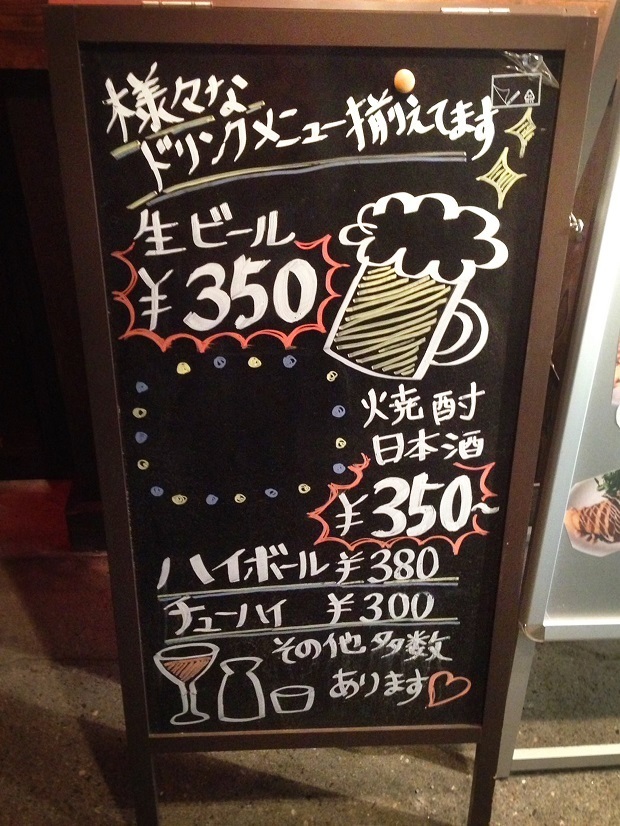 様々な
ドリンクメニュー揃えてます
生ビール
¥350
焼酎
日本酒
¥350~
ハイボール ¥380
チューハイ ¥300
その他多数
あります